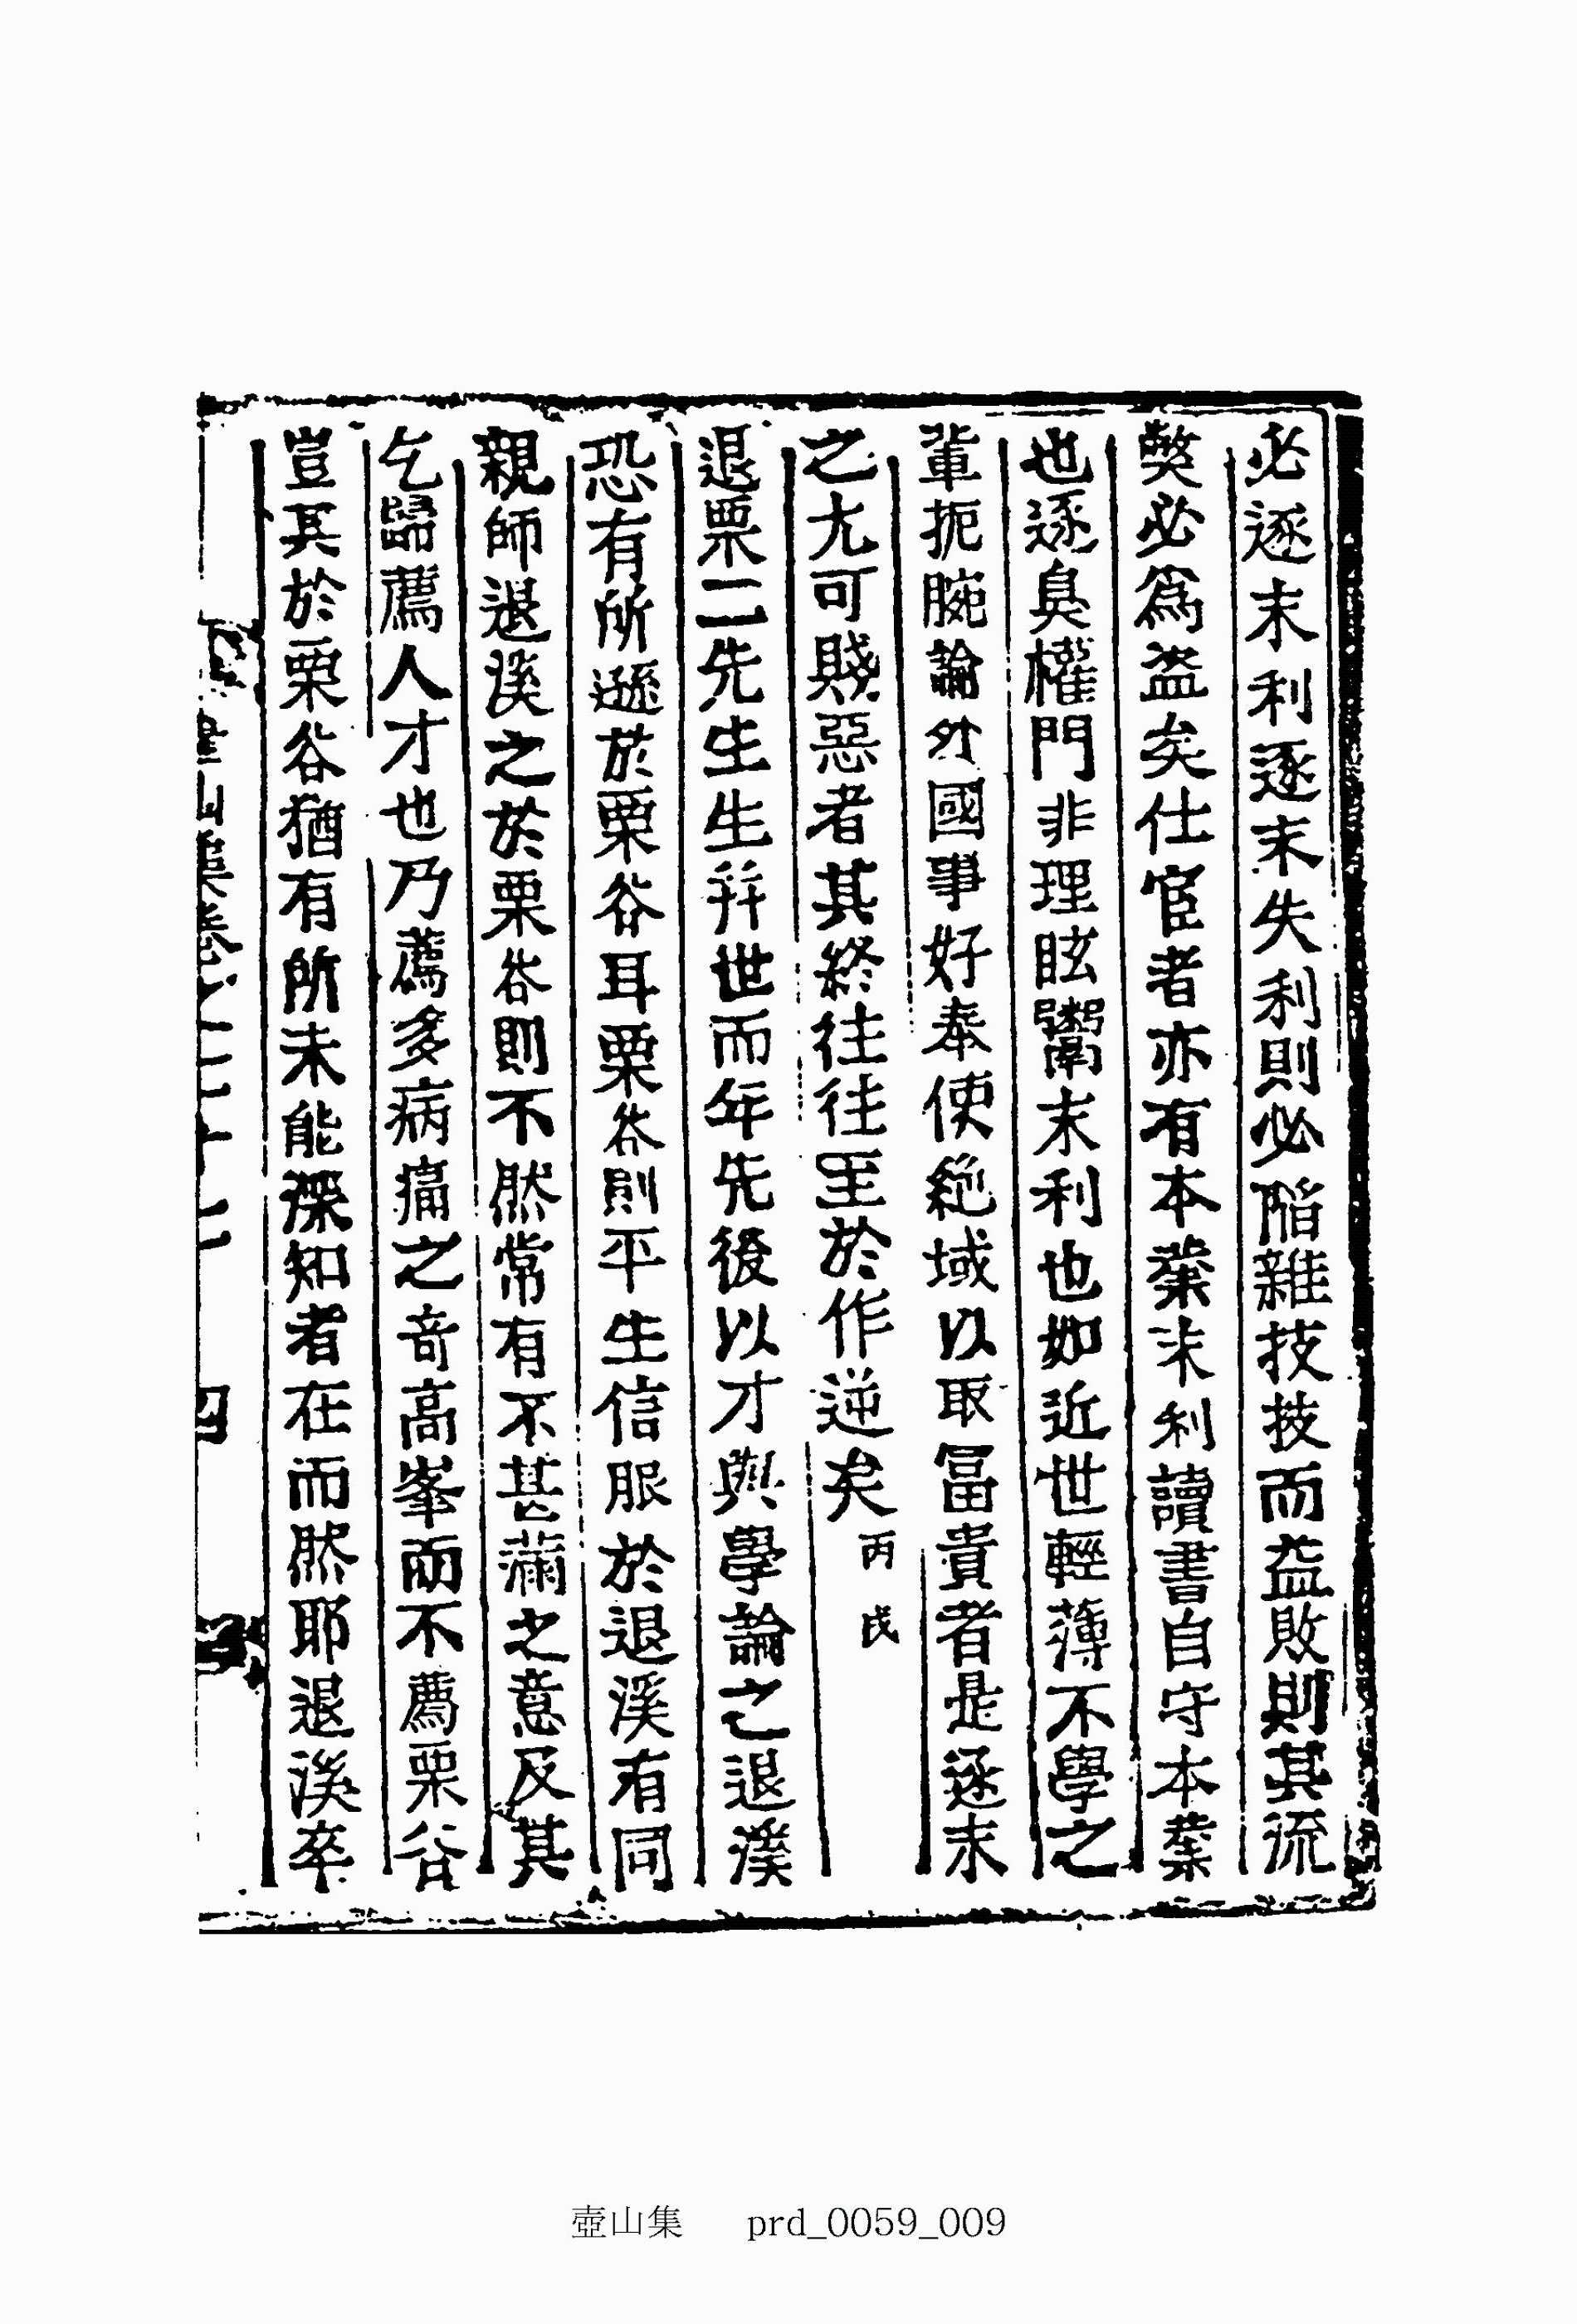 必逐末利逐末失利則必陷雜技技而益敗則其流
獘必爲盗矣仕宦者亦有本業末利讀書自守本業
也逐臭權門非理眩鬻末利也如近世輕薄不學之
輩扼腕論外國事好奉使絶域以取冨貴者是逐末
之尤可賤惡者其終徃徃至於作逆矣丙戌
退栗二先生生幷世而年先後以才與學論之退溪
恐有所遜於栗谷耳栗谷則平生信服於退溪有同
親師退溪之於栗谷則不然常有不甚滿之意及其
乞歸薦人才也乃薦多病痛之竒高峯而不薦栗谷
豈其於栗谷猶有所未能深知者在而然耶退溪卒
壺山集卷之二十七
四
壺山集 prd_0059_009